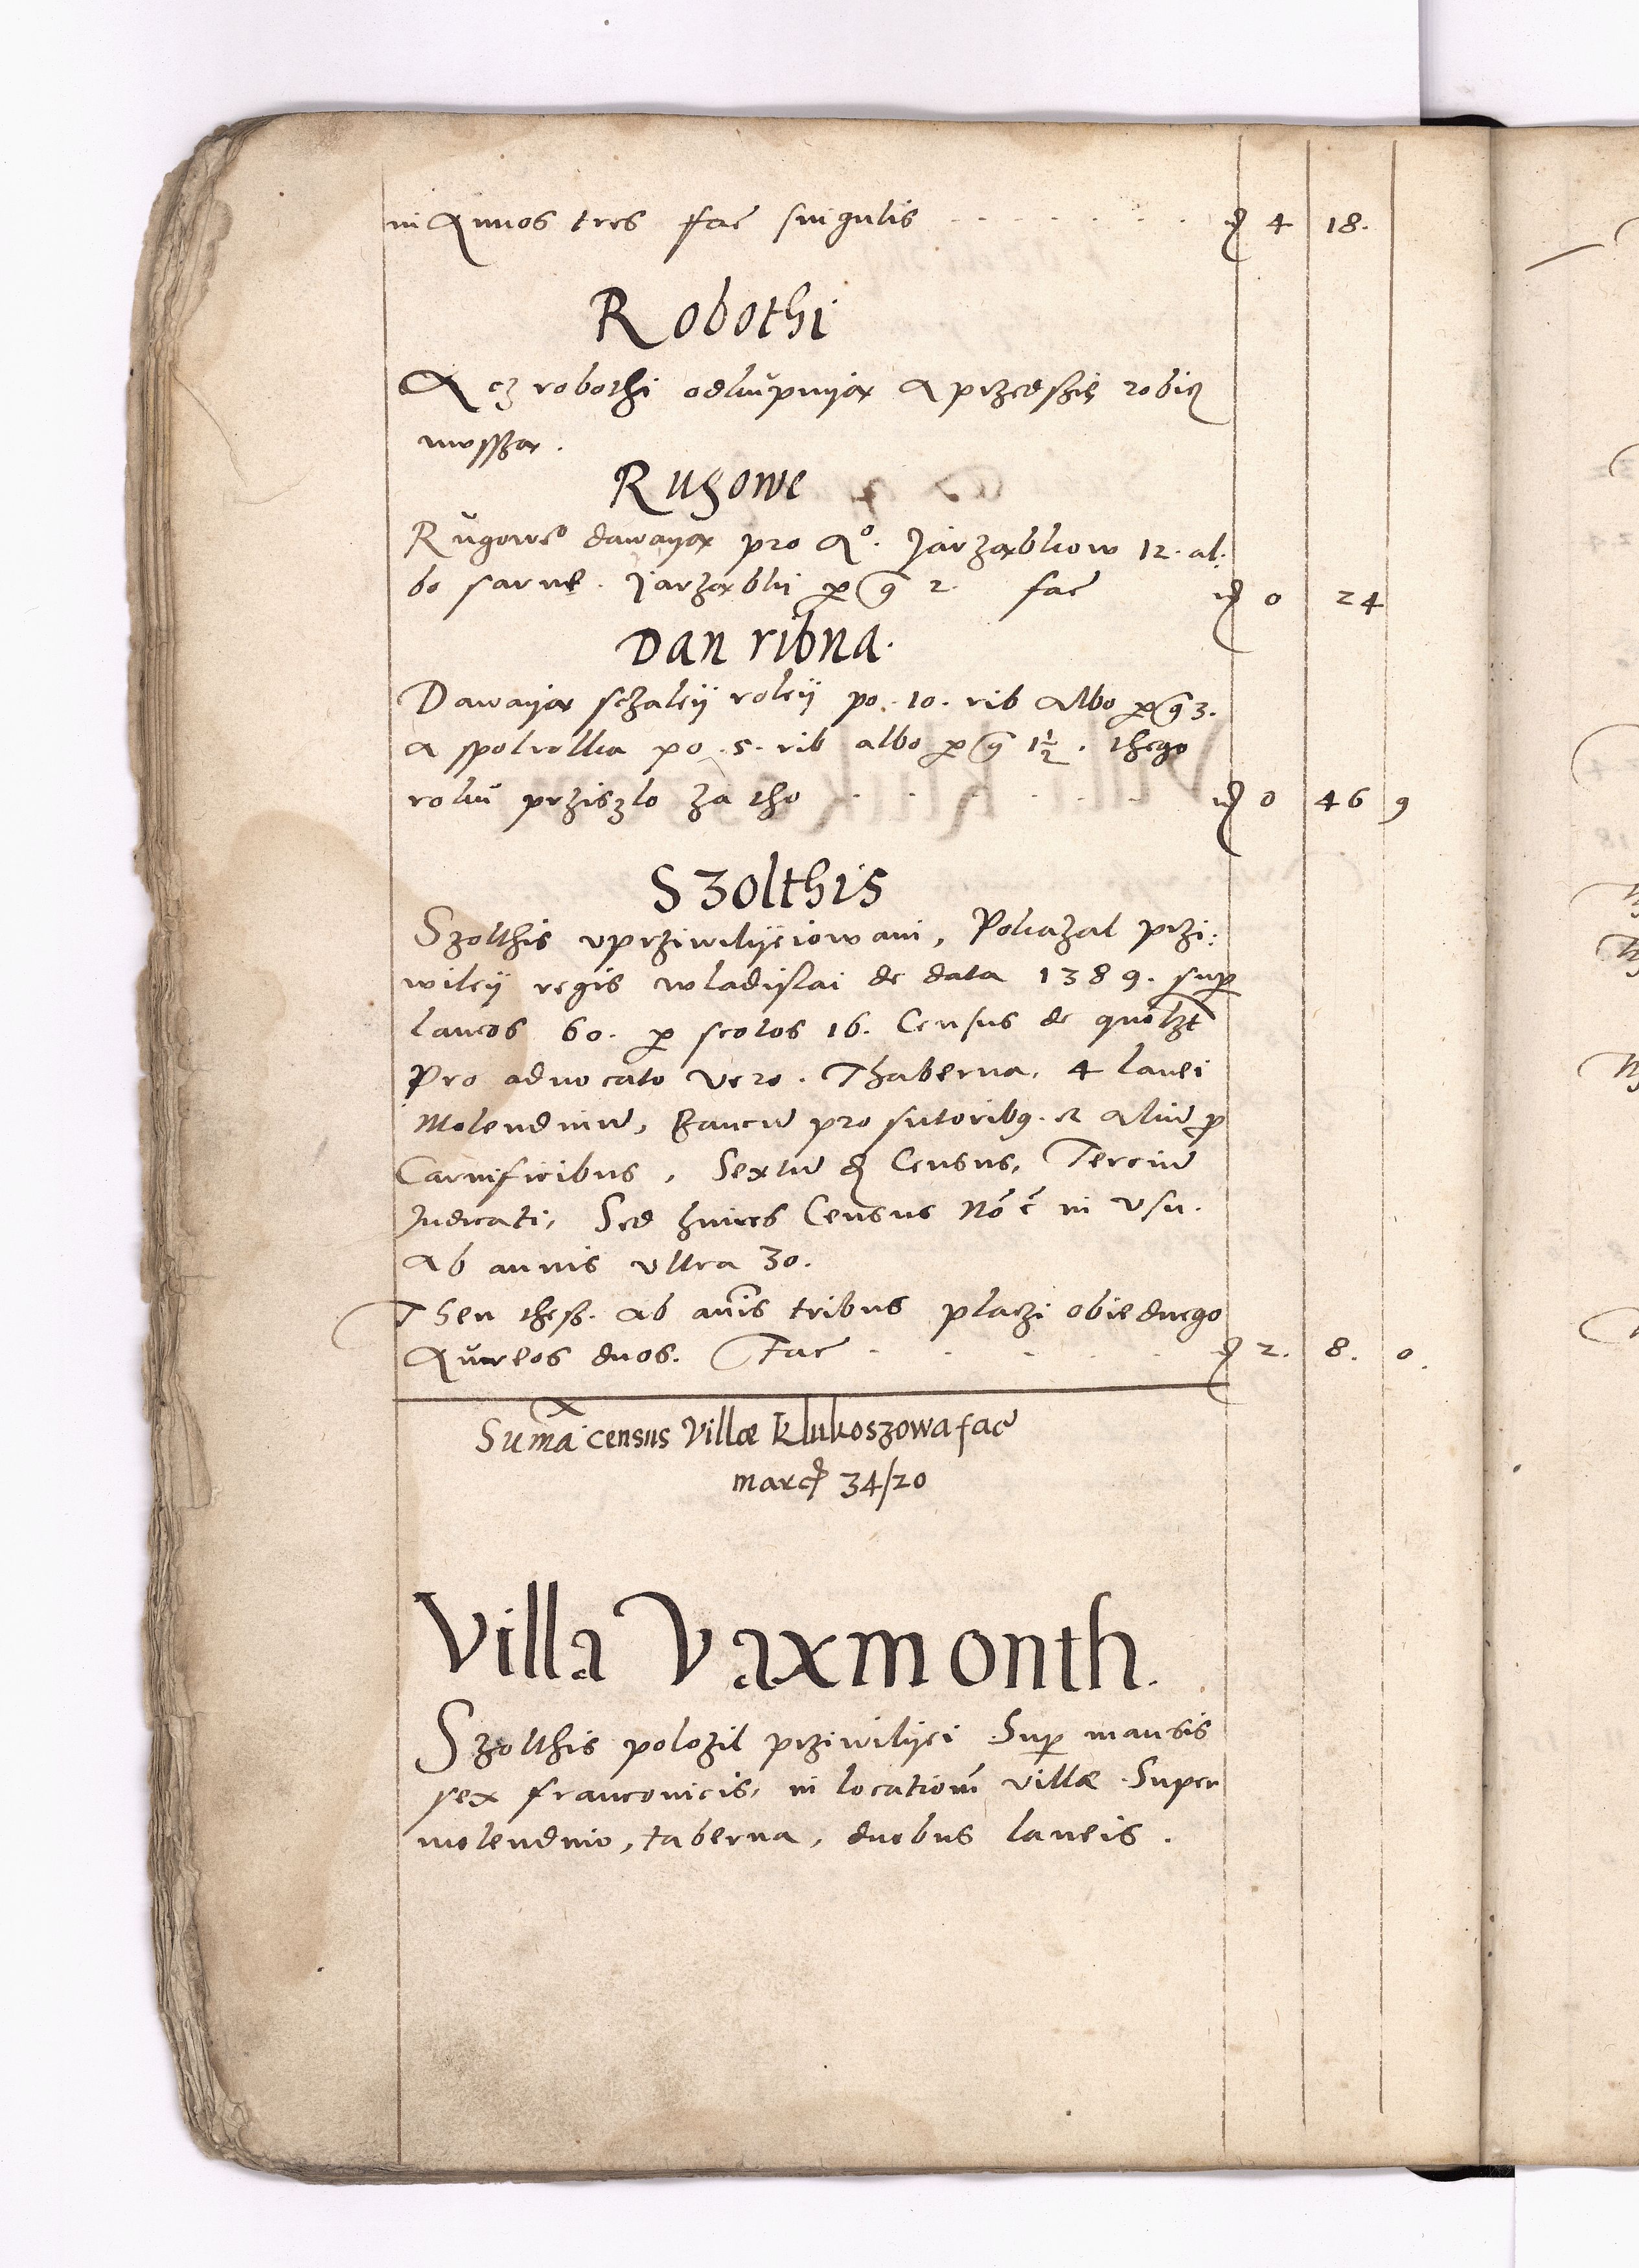 in Annos tres facͭ singulis . . . . . . . 4 18.
Robothi
Acz robothi odkŭpuyą a przedsię robicz
mussżą.
Rugowe
Rŭgowe dawayą pro Aᵒ. Jarząbkow 12. al:
bo sarne. Jarząbki p g 2. facͭ 0 24
Dan ribna.
Dawayą sczaleÿ roleÿ po. 10. rib Albo p g 3.
a spolrolka po .5. rib albo p g 1½. thego
rokŭ prziszlo za tho . . . . . 0 46 9
Szolthis
Szolthis vprziwilÿeiowani, Pokazal przi:
wileÿ regis wladislai de data 1389. sup
laneos 60. p scotos 16. Census de quolzt
Pro aduocato vero. Thaberna, 4 lanei
Molendinū, Bancū pro sutoribꝫ. et Aliū p
Carnificibus, Sextū Census, Terciū
Judicati, Sed huiꝰ Census Nō ē in vsu.
Ab annis vltra 30.
Then thesz. ab anīs tribus placzi obiednego
Aŭreos duos. Facͭ . . . . . 2. 8. 0.
Sum̄a census Villæ Klukoszowa facͭ
marc 34/20
Villa Vaxmonth.
Szolthis polozil prziwilÿei Sup mansis
sex franconicis, in locationē villæ Super
molendino, taberna, duobus laneis.